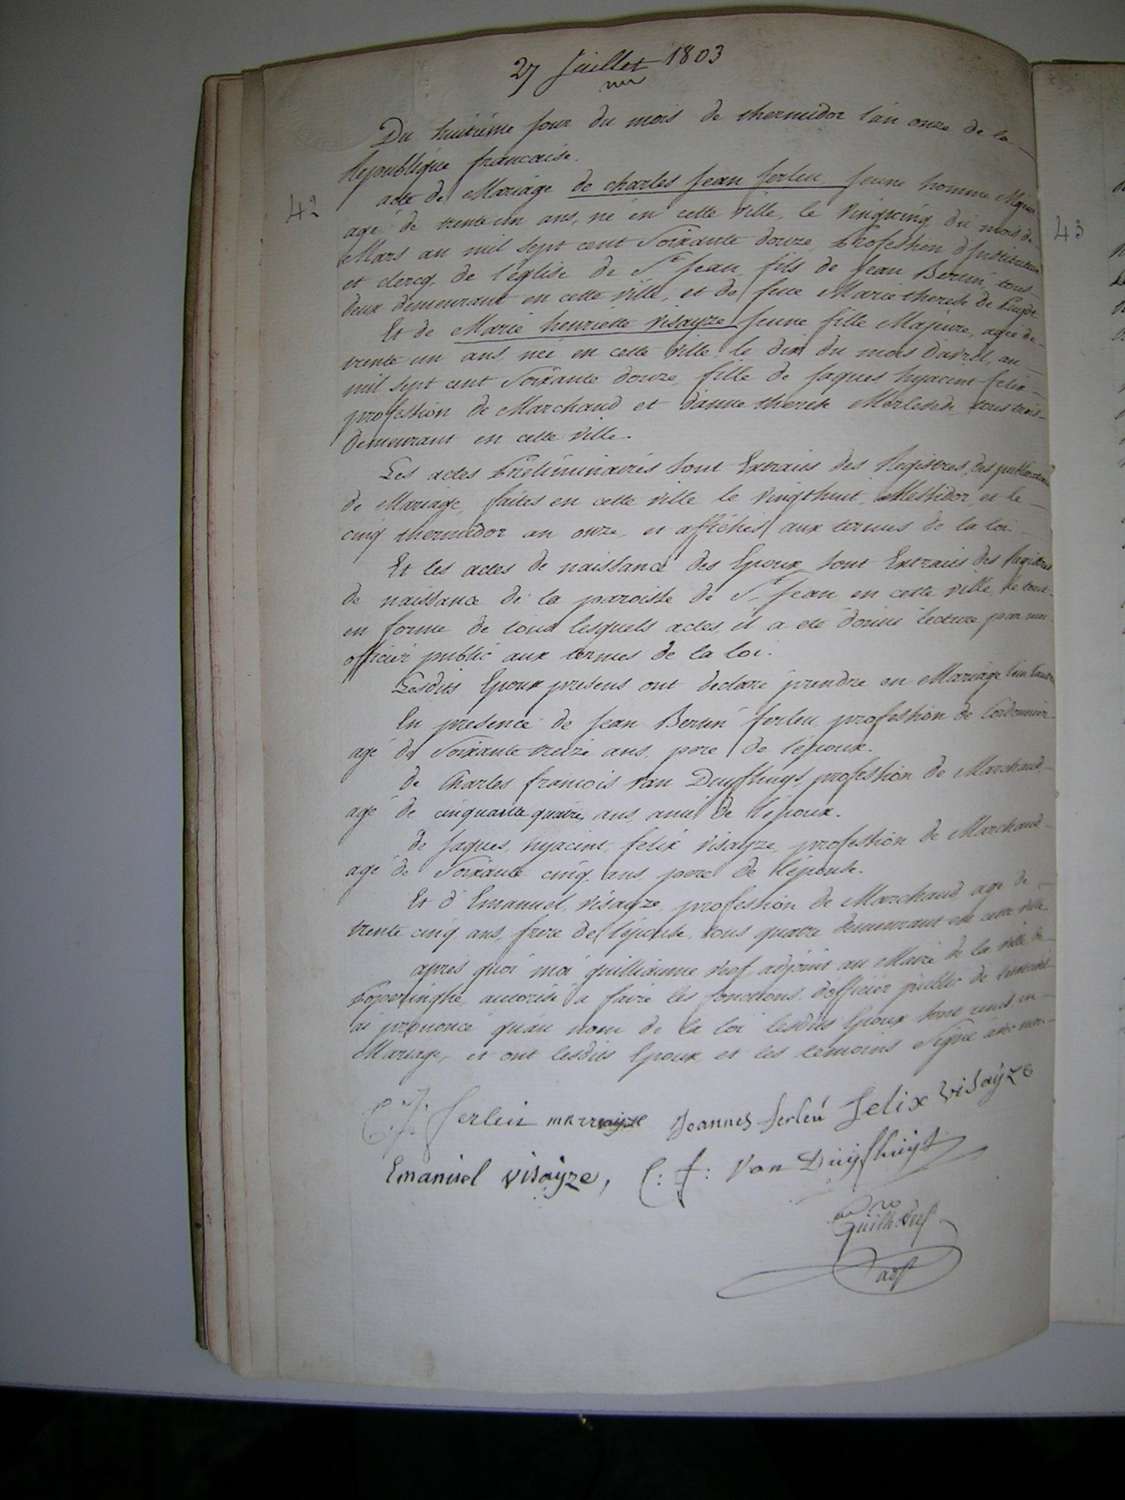 27 Juillet 1803
Du huitième jour du mois de thermidor l'an onze de la
Republique francaise.
42
acte de Mariage de charles jean ferleu jeune homme Majeur
agé de trente un ans, né en cette ville, le vingcinq du mois de
Mars an mil sept cent Soixante douze, profession d'Instituteur
et clercq de l'église de St jean, fils de jean Bertin, tous
deux demeurant en cette ville, et de feue Marie therese de
Et de Marie henriette Visayze jeune fille Majeure, agée de
trente un ans, née en cette ville, le dix du mois Davril, an
mil sept cent Soixante douze, fille de jaques hyacint felix
profession de Marchand et danne therese tous trois
demeurant en cette ville.
Les actes Préliminaires sont Extraits des Registres des publications
de Mariage, faites en cette ville le vingthuit Messidor et le
cinq thermidor an onze, et affichés aux termes de la loi.
Et les actes de naissance des Epoux sont Extraits des Registres
de naissance de la paroisse de St jean en cette ville, le tout
en forme de tous lesquels actes, il a été donné lecture par moi
officier public aux termes de la loi.
Lesdits Epoux presens ont declaré prendre en Mariage l'un l'autre
En presence de jean Bertin ferleu, profession de Cordonnier
agé de Soixante treize ans, pere de l'epoux.
de Charles francois Van Duyfhuys, profession de Marchand,
agé de cinquante quatre ans ami de l'époux.
de jaques, hyacint, felix Visayze, profession de Marchand
agé de Soixante cinq ans pere de l'épouse.
Et d'Emanuel, Visayze, profession de Marchand agé de
trente cinq ans, frere de l'épouse, tous quatre demeurant en cette ville
après quoi moi guilliaume adjoint au Maire de la ville de
Poperinghe, autorisé a faire les fonctions d'officier public de l'etat civil
ai prononcé qu'au nom de la loi lesdits Epoux sont unis en
Mariage, et ont lesdits Epoux et les temoins Signé avec moi
C. J. ferleu Joannes ferleu felix visaÿze
Emanuel visaÿze, C: f: Van Duÿfhuÿs
adj
43